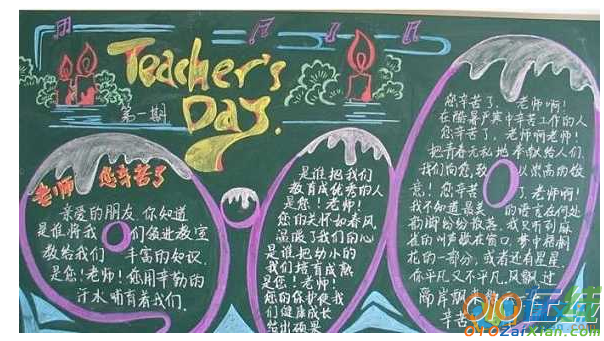 Teacher's
Day.
第一期
老师 您辛苦了
亲爱的朋友 你知道
是谁将我们领进教室
教给我们 丰富的知识
是您!老师!您用辛勤的
汗水哺育着我们.
是谁把我们
教育成优秀的人
是您!老师!
您的关怀如春风
温暖了我们的心
是谁把幼小的
我们培育成熟
是您!老师!
您的保护使我
们健康成长
给出硕果
您辛苦了,老师啊!
在酷暑严寒中辛苦工作的人
您辛苦了,老师啊老师!
把青春无私地奉献给人们.
我们向您,致 以崇高的敬
意!您辛苦 了,老师啊!
我不知道最美 的语言在何处
纷纷散落,我只听到麻
雀的叫声歇在窗口
花的一部分,或者还有星星.
你平凡又不平凡,风飘过
两岸飘
辛苦
010在线
010ZaiXian.com